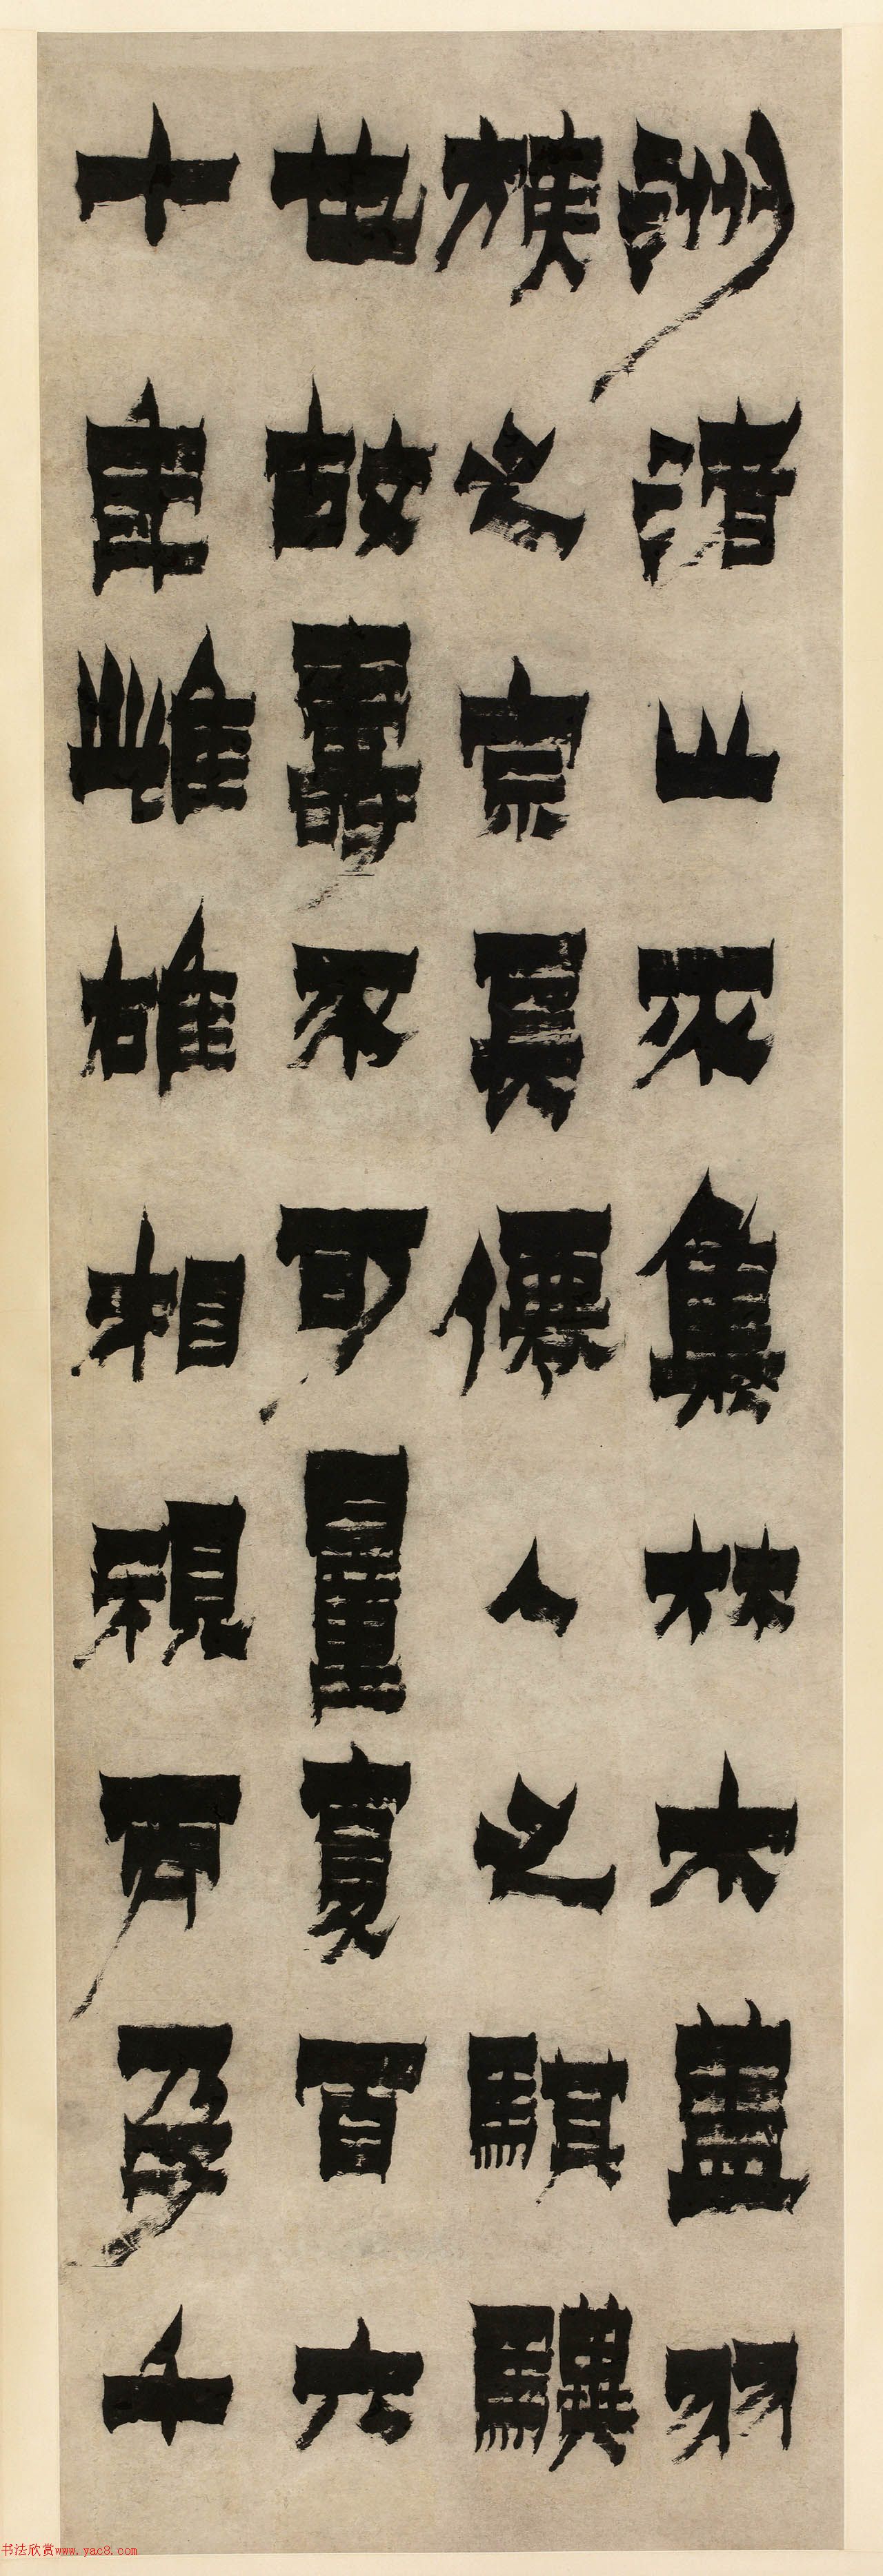 洲渚止不集林木蓋羽
族之宗長僊人之騏驥
也故壽不可量寔百六
十年雌雄相視而孕千
书法欣赏www.yac8.com